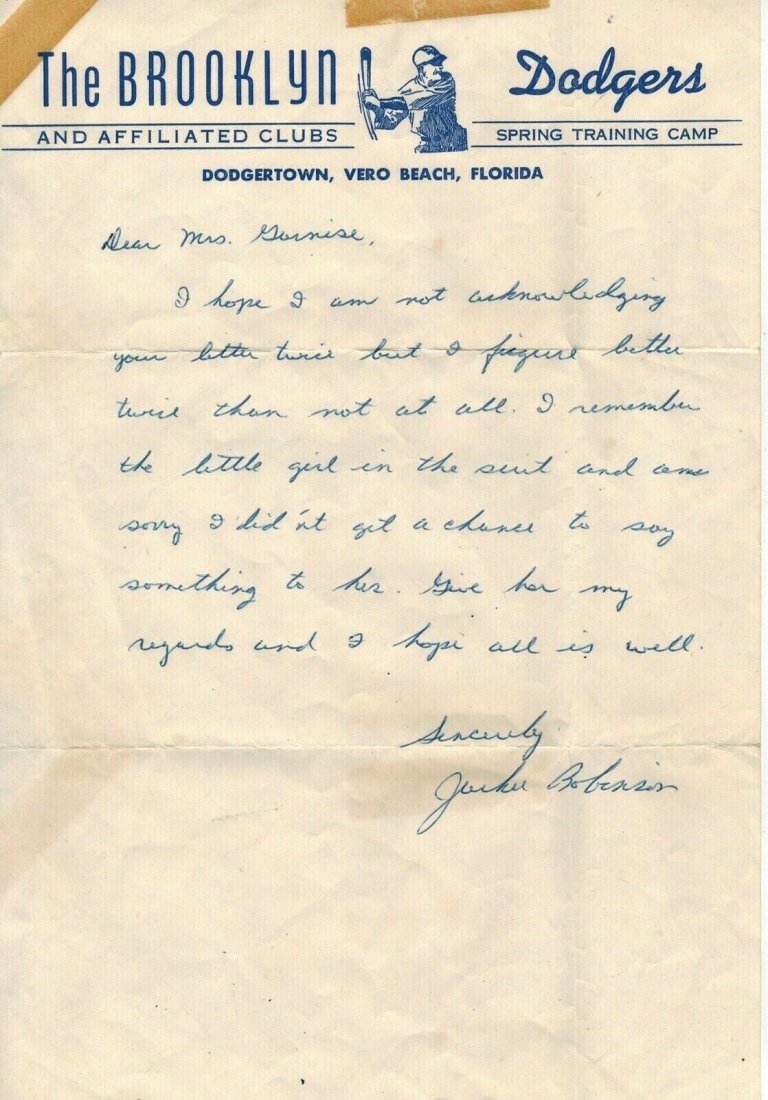 The BROOKLYN Dodgers
AND AFFILIATED CLUBS SPRING TRAINING CAMP
DODGERTOWN, VERO BEACH, FLORIDA
Dear Mrs.
I hope I am not acknowledging
your letter twice but I figure better
twice than not at all. I remember
the little girl in the suit and am
sorry I did'nt get a chance to say
something to her. Give her my
regards and I hope all is well.
Sincerely
Jackie Robinson